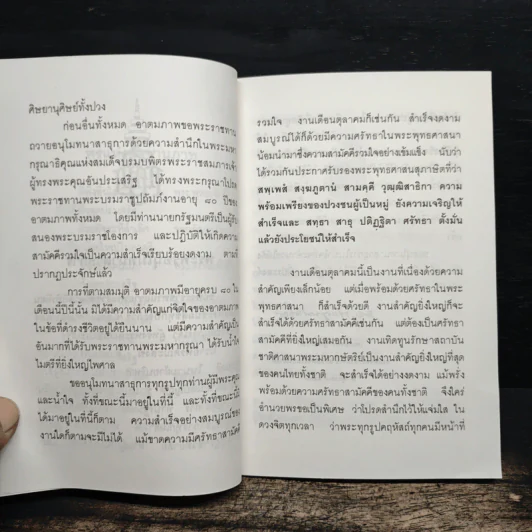 ศิษยานุศิษย์ทั้งปวง
ก่อนอื่นทั้งหมด อาตมภาพขอพระราชทาน
ถวายอนุโมทนาสาธุการด้วยความสำนึกในพระมหา
กรุณาธิคุณแห่งสมเด็จบรมบพิตรพระราชสมภารเจ้า
ผู้ทรงพระคุณอันประเสริฐ ได้ทรงพระกรุณาโปรด
พระราชทานพระบรมราชูปถัมภ์งานอายุ ๘๐ ปีของ
อาตมภาพทั้งหมด โดยมีท่านนายกรัฐมนตรีเป็นผู้รับ
สนองพระบรมราชโองการ และปฏิบัติให้เกิดความ
สามัคคีรวมใจเป็นความสำเร็จเรียบร้อยงดงาม ตามที่
ปรากฏประจักษ์แล้ว
การที่ตามสมมุติ อาตมภาพมีอายุครบ ๘๐ ใน
เดือนนี้ปีนี้นั้น มิได้มีความสำคัญแก่จิตใจของอาตมภาพ
ในข้อที่ดำรงชีวิตอยู่ได้ยืนนาน แต่มีความสำคัญเป็น
อันมากที่ได้รับพระราชทานพระมหากรุณา ได้รับน้ำใจ
ไมตรีที่ยิ่งใหญ่ไพศาล
ขออนุโมทนาสาธุการทุกรูปทุกท่านผู้มีพระคุณ
และน้ำใจ ทั้งที่ขณะนี้มาอยู่ในที่นี้ และทั้งที่ขณะนี้มิ
ได้มาอยู่ในที่นี้ก็ตาม ความสำเร็จอย่างสมบูรณ์ของ
งานใดก็ตามจะมีไม่ได้ แม้ขาดความมีศรัทธาสามัคคี
รวมใจ งานเดือนตุลาคมก็เช่นกัน สำเร็จงดงาม
สมบูรณ์ได้ก็ด้วยมีความศรัทธาในพระพุทธศาสนา
น้อมนำมาซึ่งความสามัคคีรวมใจอย่างเข้มแข็ง นับว่า
ได้รวมกันประกาศรับรองพระพุทธศาสนสุภาษิตที่ว่า
สพฺเพสํ สงฺฆภูตานํ สามคฺคี วุฒฺฒิสาธิกา ความ
พร้อมเพรียงของปวงชนผู้เป็นหมู่ ยังความเจริญให้
สำเร็จและ สทฺธา สาธุ ปติฏฺฐิตา ศรัทธา ตั้งมั่น
แล้วยังประโยชน์ให้สำเร็จ
งานเดือนตุลาคมนี้เป็นงานที่เนื่องด้วยความ
สำคัญเพียงเล็กน้อย แต่เมื่อพร้อมด้วยศรัทธาในพระ
พุทธศาสนา ก็สำเร็จด้วยดี งานสำคัญยิ่งใหญ่ก็จะ
สำเร็จได้ด้วยศรัทธาสามัคคีเช่นกัน แต่ต้องเป็นศรัทธา
สามัคคีที่ยิ่งใหญ่เสมอกัน งานเทิดทูนรักษาสถาบัน
ชาติศาสนาพระมหากษัตริย์เป็นงานสำคัญยิ่งใหญ่ที่สุด
ของคนไทยทั้งชาติ จะสำเร็จได้อย่างงดงาม แม้พรั่ง
พร้อมด้วยความศรัทธาสามัคคีของคนทั้งชาติ จึงใคร่
อำนวยพรขอเป็นพิเศษ ว่าโปรดสำนึกไว้ให้แจ่มใส ใน
ดวงจิตทุกเวลา ว่าพระทุกรูปคฤหัสถ์ทุกคนมีหน้าที่